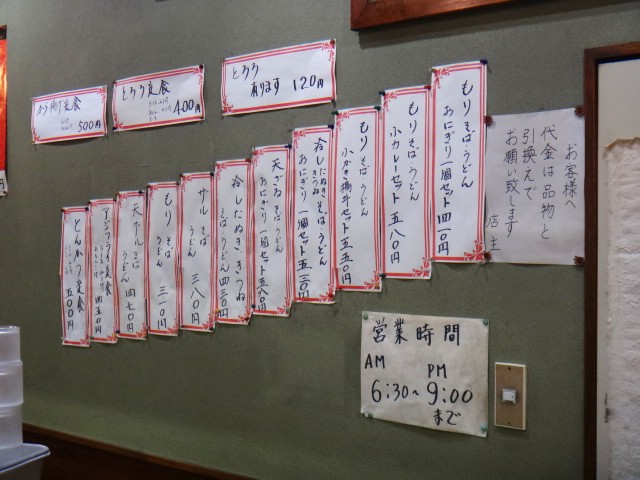 とろろ
有ります 120円
とろろ定食
400円
定食
500円
お客様へ
代金は品物と
引換えで
お願い致します
店主
もりそばうどん
おにぎり一個セット四一〇円
もりそばうどん
小カレーセット五八〇円
もりそばうどん
小かき揚丼セット五五〇円
冷したぬききつねそばうどん
おにぎり一個セット五二〇円
天ざるそばうどん
おにぎり一個セット五八〇円
冷したぬききつね
そばうどん四二〇円
ザルそば
うどん 三八〇円
もりそば
うどん 三一〇円
天ザルそば
うどん 四七〇円
アジフライ定食
四五〇円
とんかつ定食
五〇〇円
営業時間
AM PM
6:30~9:00
まで